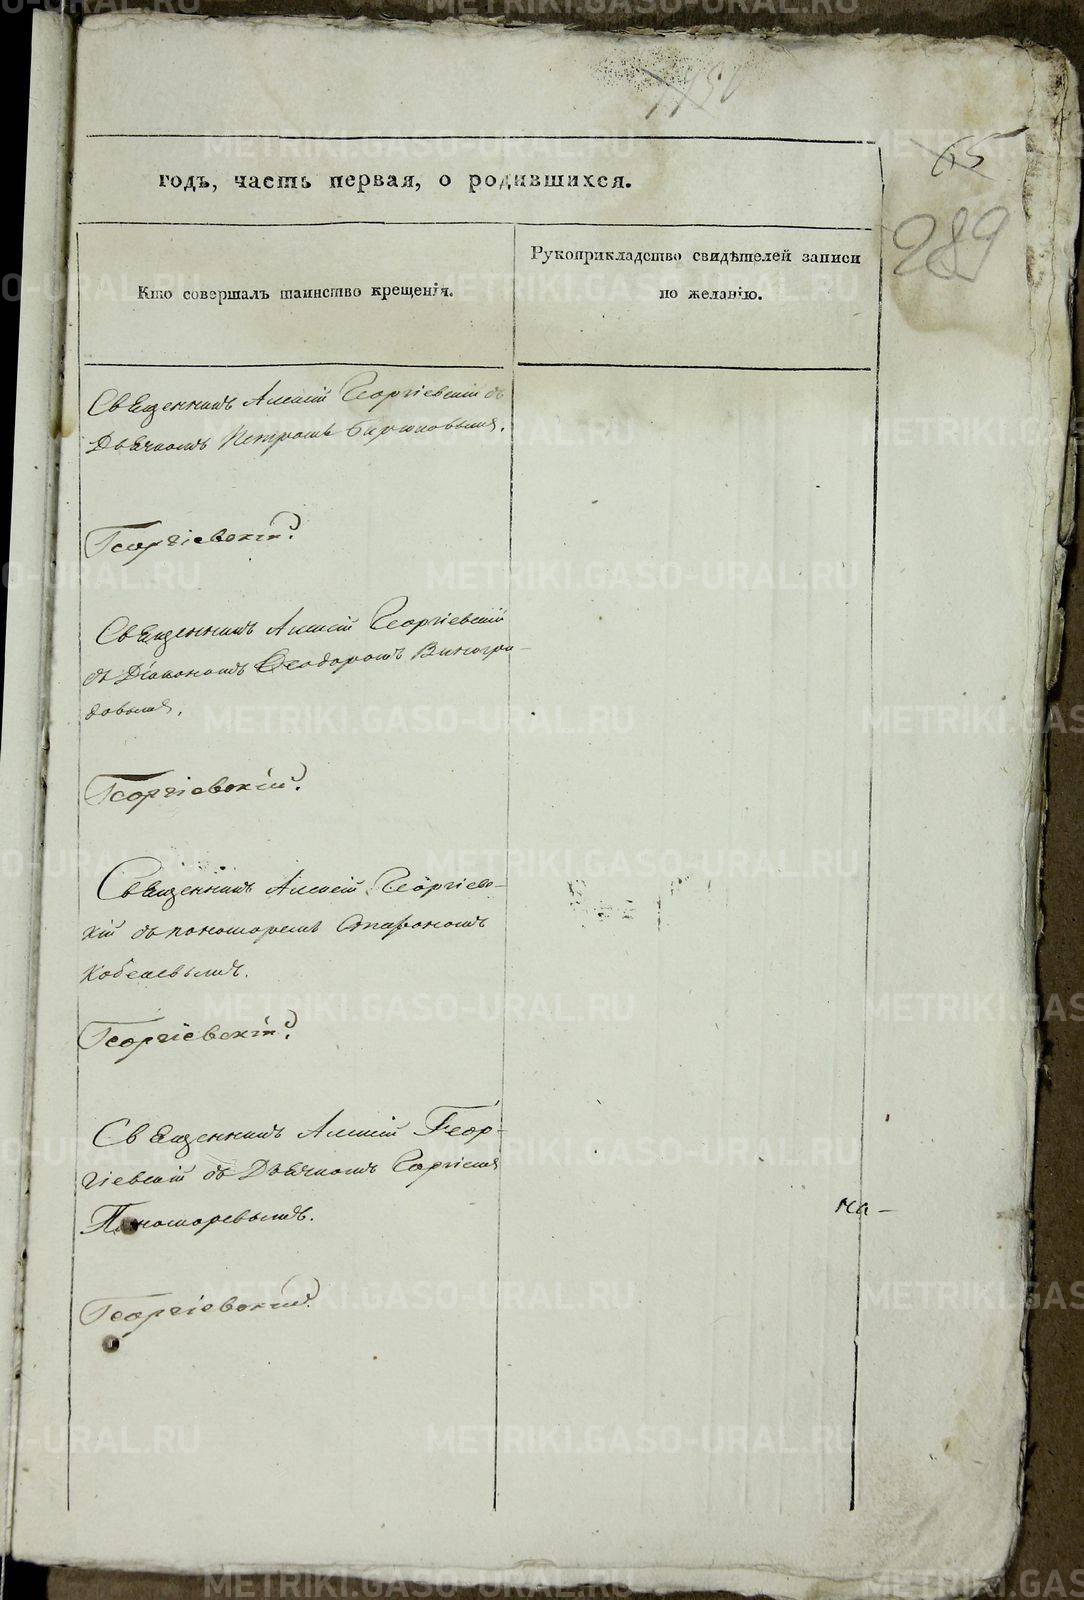 1130
65
289
годъ, часть первая, о родившихся.
Кто совершалъ таинство крещенія.
Рукоприкладство свидѣтелей записи
по желанію.
Священникъ Алексій Георгіевскій съ
Дьячкомъ Петромъ Бирюковымъ.
Георгіевскій.
Священникъ Алексій Георгіевскій
съ Діакономъ Ѳеодоромъ Виногра-
довымъ.
Георгіевскій.
Священникъ Алексій Георгіевс-
кій съ пономаремъ Стефаномъ
Кобелевымъ.
Георгіевскій.
Священникъ Алексій Геор-
гіевскій съ Дьячкомъ Георгіемъ
Пономаревымъ.
на-
Георгіевскій.
METRIKI.GASO-URAL.RU